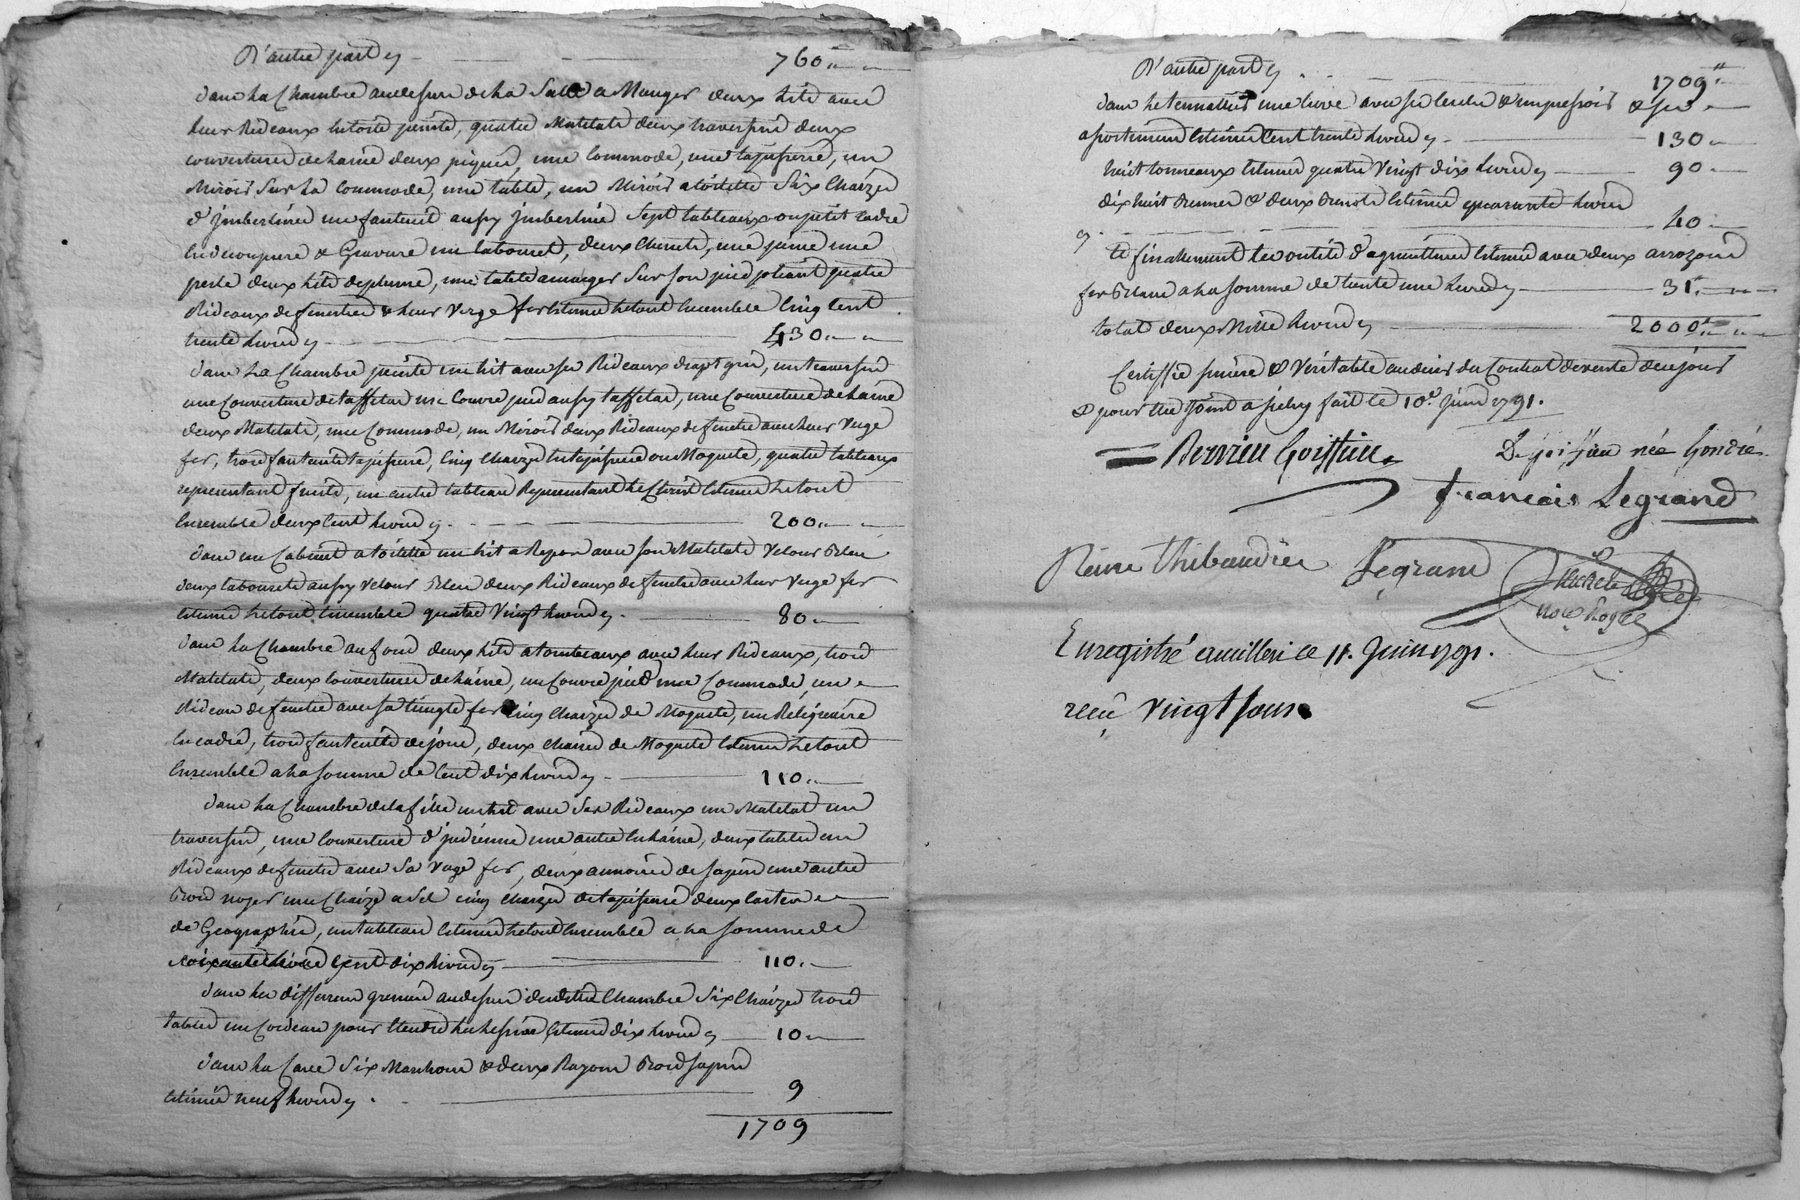 D'autre part cy 760
dans la Chambre audessus de la Salle a Manger deux lits avec
leurs Rideaux de toile peinte, quatre Matelats deux traversins deux
couvertures de laine deux piqués, une Commode, une tapisserie, un
Miroir Sur La Commode, une table, un Miroir a toilette Six Chaizes
d'jmberline un fauteuil aussy jmberline Sept tableaux ou petit cadre
en découpure & Gravure un tabouret, deux Chenets, une pince une
pesle deux lits de plume, une table a manger Sur Son pied pliant quatre
Rideaux de fenestres & leurs Verge fer Estimé le tout Ensemble Cinq Cent
trente livres cy 430
dans La Chambre peinte un lit avec ses Rideaux drapt gris, un traversin
une Couverture de taffetas un Couvre pied aussy taffetas, une Couverture de laine
deux Matelats, une Commode, un Miroir deux Rideaux de fenetre avec leurs Verge
fer, trois fauteuils tapisserie, Cinq Chaizes en tapisserie ou Moquette, quatre tableaux
representant fruits, un autre tableau Representant le Christ Estimé le tout
Ensemble deux Cent livres cy 200
dans un Cabinet a toilette un lit a Repos avec son Matelats Velour Bleu
deux tabourets aussy Velour Bleu deux Rideaux de fenetre avec leur Verge fer
Estimé le tout Ensemble quatre Vingt livres cy 80
dans La Chambre au fond deux lits a tombeaux avec leurs Rideaux, trois
Matelats, deux Couvertures de laine, un Couvre pied une Commode, un
Rideau de fenetre avec sa tringle fer Cinq Chaizes de Moquette, un Religieuse
En cadre, trois fauteuils de jonc, deux chaises de Moquette Estimé le tout
Ensemble a la somme de Cent dix livres cy 110
dans La Chambre de la fille un lit avec Ses Rideaux un Matelat un
traversin, une Couverture d'jndienne une autre En laine, deux tables un
Rideaux de fenetre avec Sa Verge fer, deux armoires de sapin une autre
Bois noyer une Chaize a Sel cinq Chaizes de tapisserie deux Cartes
de Geographie, un tableau Estimé le tout Ensemble a la somme de
soixante livres Cent dix livres cy 110
dans les differens greniers audessus desdites Chambre Six Chaizes trois
tables un Cordeau pour Etendre la lessive Estimé dix livres cy 10
dans La Cave Six & deux Rayons Bois sapin
Estimé neuf livres cy 9
1709
D'autre part cy 1709
dans une Cuve avec & fer
apartenant Estimé Cent trente livres cy 130
huit tonneaux Estimé quatre Vingt dix livres cy 90
dix huit Bennes & deux Estimé quarante livres
cy 40
Et finallement les outils d'agriculture Estimé avec deux arrozoirs
fer Blanc a la somme de trente une livres cy 31
total deux Mille livres cy 2000
Certiffié sincere & Veritable au desir du Contrat de vente de ce jour
& pour Etre joint a jceluy fait le 10e juin 1791.
Goiffieu
née
francois Legrand
Reine Thibaudier Legrand
Enregistré ce 11. Juin 1791.
recu vingt sous